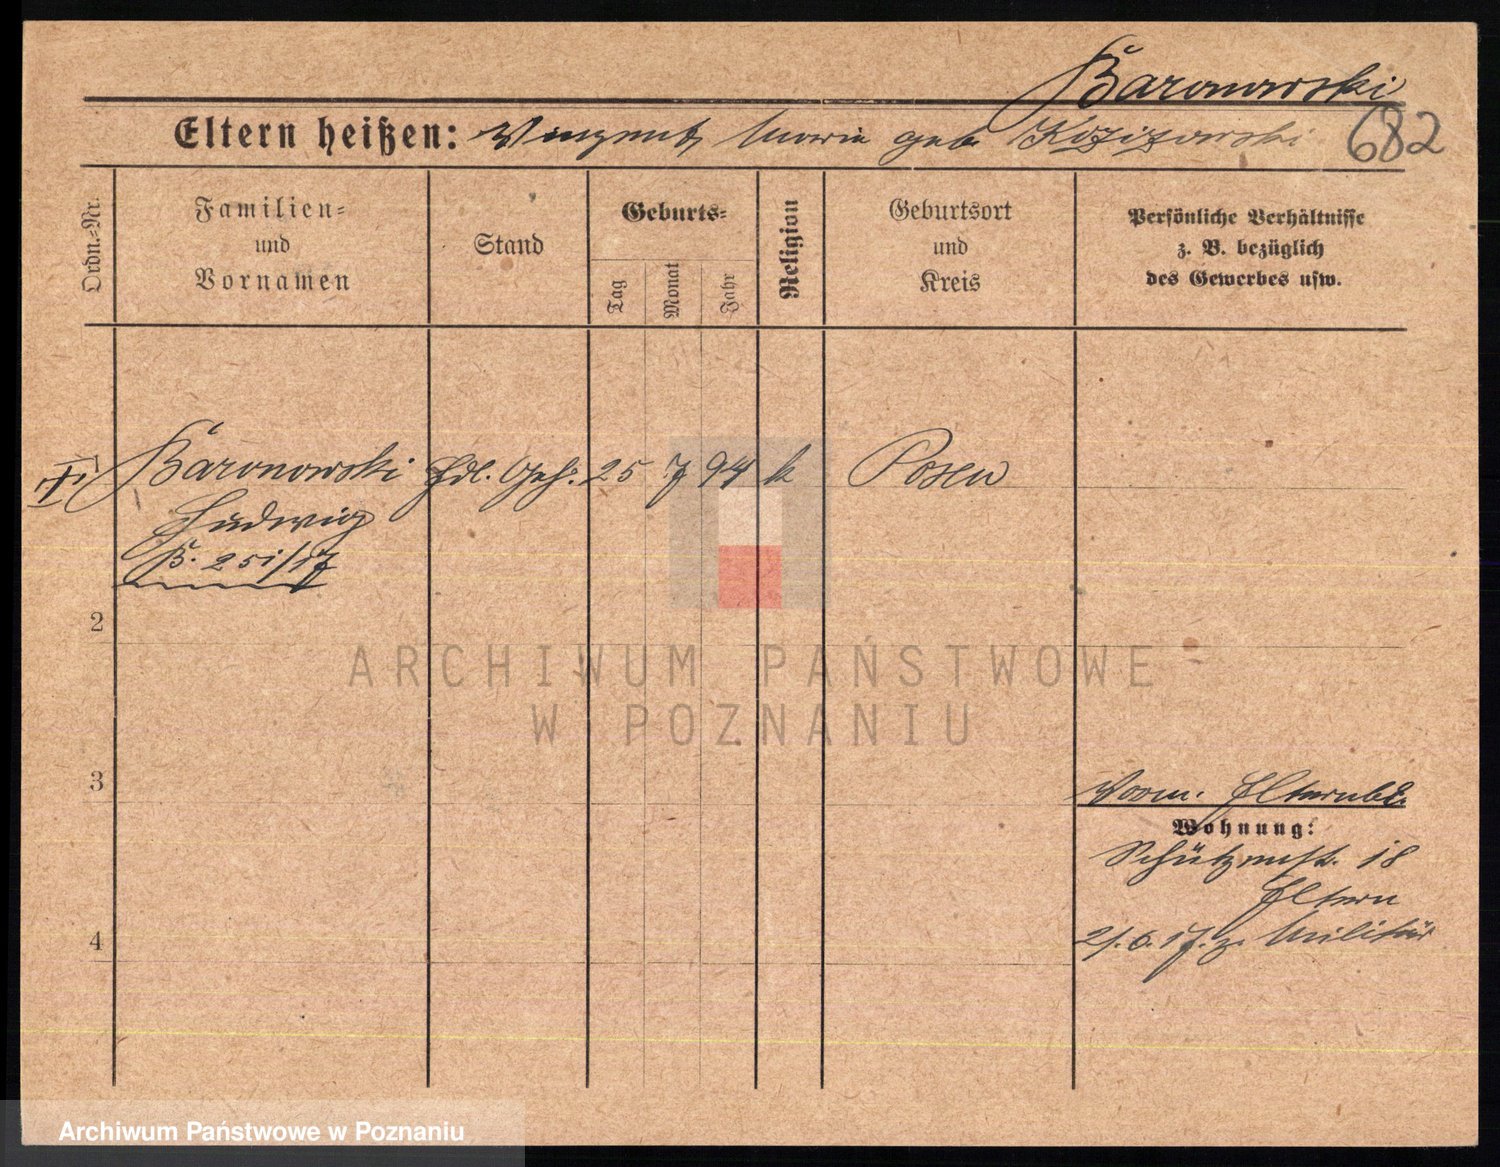 Baronowski
Eltern heißen: Vinzent, Maria geb. 682
Ordn.-Nr.
Familien-
und
Vornamen
Stand
Geburts-
Tag
Monat
Jahr
Religion
Geburtsort
und
Kreis
Persönliche Verhältnisse
z. B. bezüglich
des Gewerbes usw.
Baronowski Hdl. Geh. 25 7 94 k Posen
Ludwig
B. 251/17
2
3
4
Vorm. Elternbl.
Wohnung:
Schützenstr. 18
Eltern
21.6.17. z. Militär
ARCHIWUM PAŃSTWOWE
W POZNANIU
Archiwum Państwowe w Poznaniu